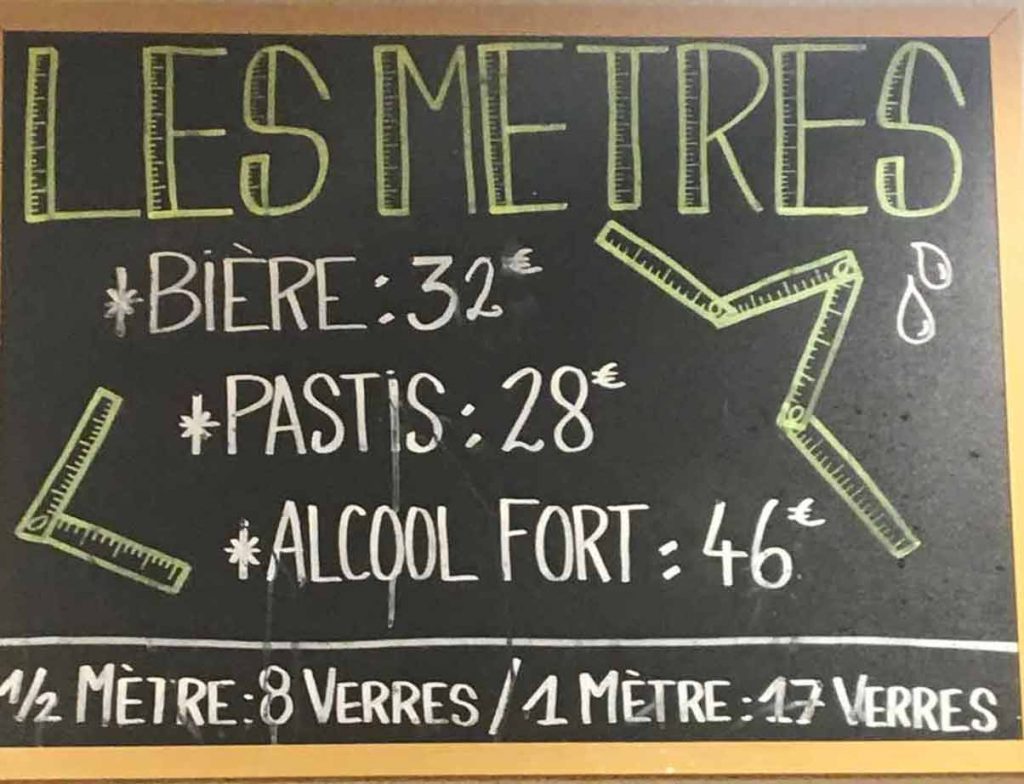 LES METRES
*BIÈRE : 32€
*PASTIS : 28€
*ALCOOL FORT : 46€
1/2 MÈTRE : 8 VERRES / 1 MÈTRE : 17 VERRES